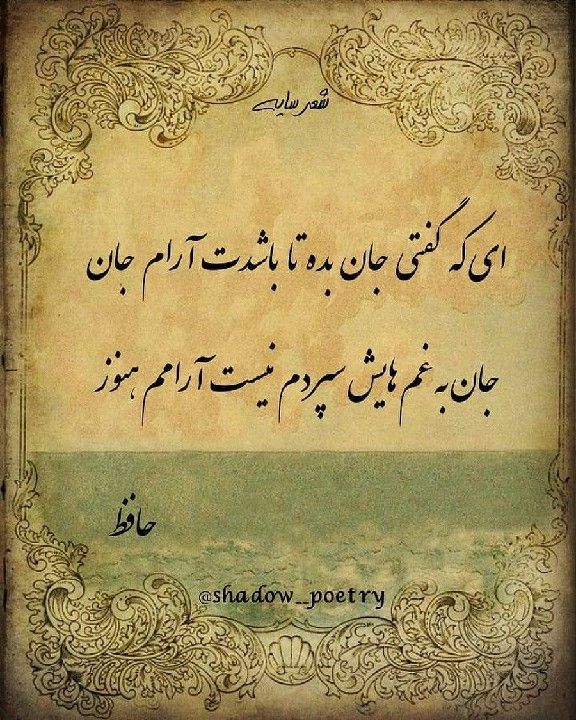 شعر سایه
ای که گفتی جان بده تا باشدت آرام جان
جان به غم هایش سپردم نیست آرامم هنوز
حافظ
@shadow__poetry